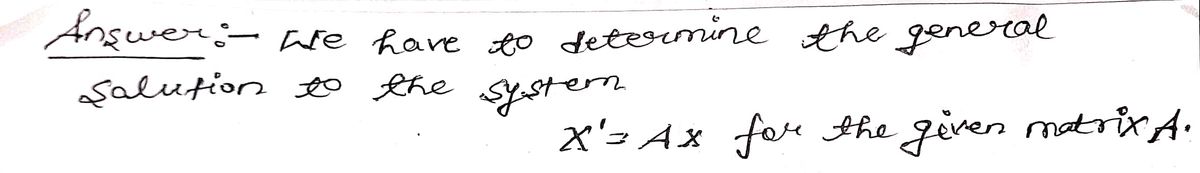 Answer:- We have to determine the general
Solution to the system
X' = Ax for the given matrix A.